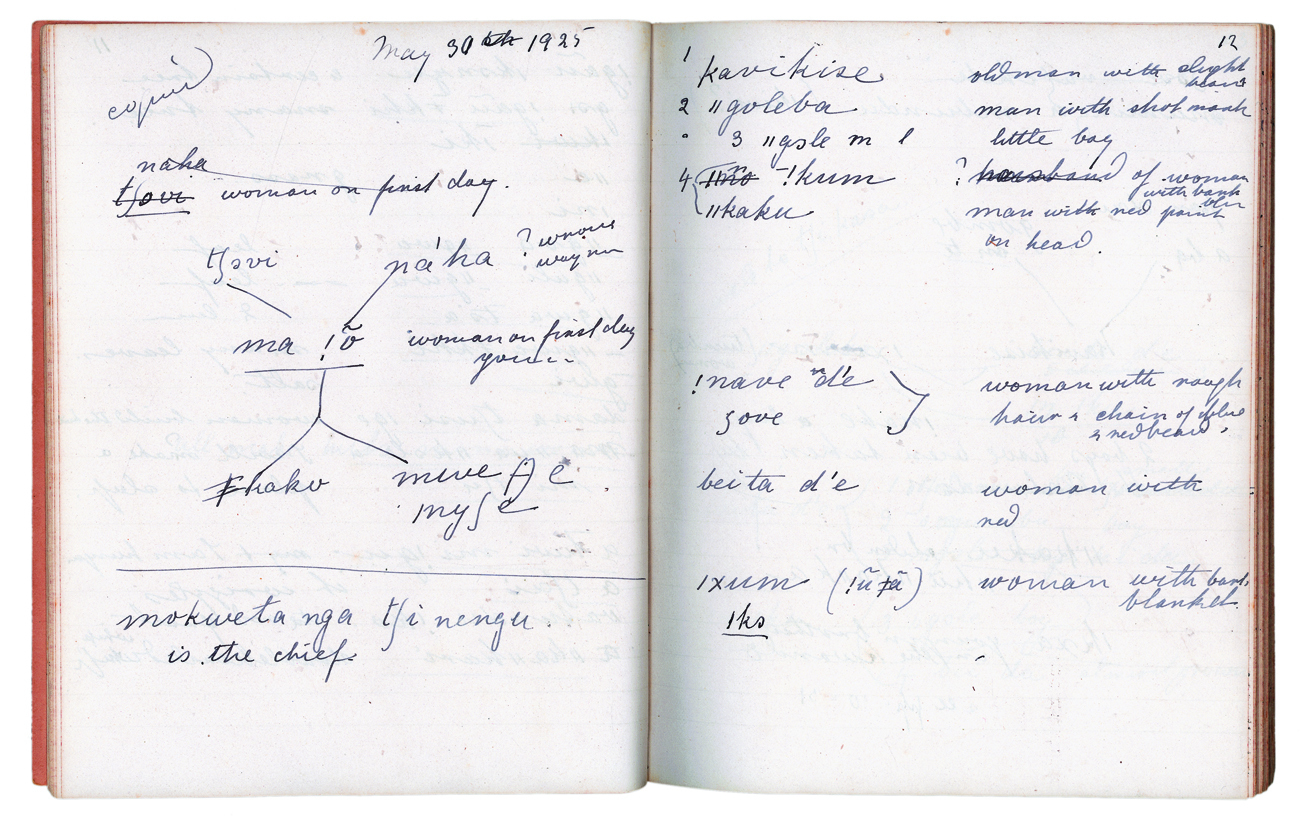 May 30th 1925
copied
naha
tʃovi woman on first day.
tʃɔvi
na'ha ? wrong
way
ma !õ woman on first day
hako
mʋʃe
mokweta nga tʃi nengu.
is the chief.
12
1 kavikise old man with slight
beard
2 ǁgoleba man with shot mark
3 little boy
4 ǁño !kum ? husband of woman
with bank
ǁkaku man with red paint
on head.
!nave d'e woman with rough
ʒove hair & chain of blue
& red beads.
beita d'e woman with
red
ǀxum woman with
blanket.
ǀko